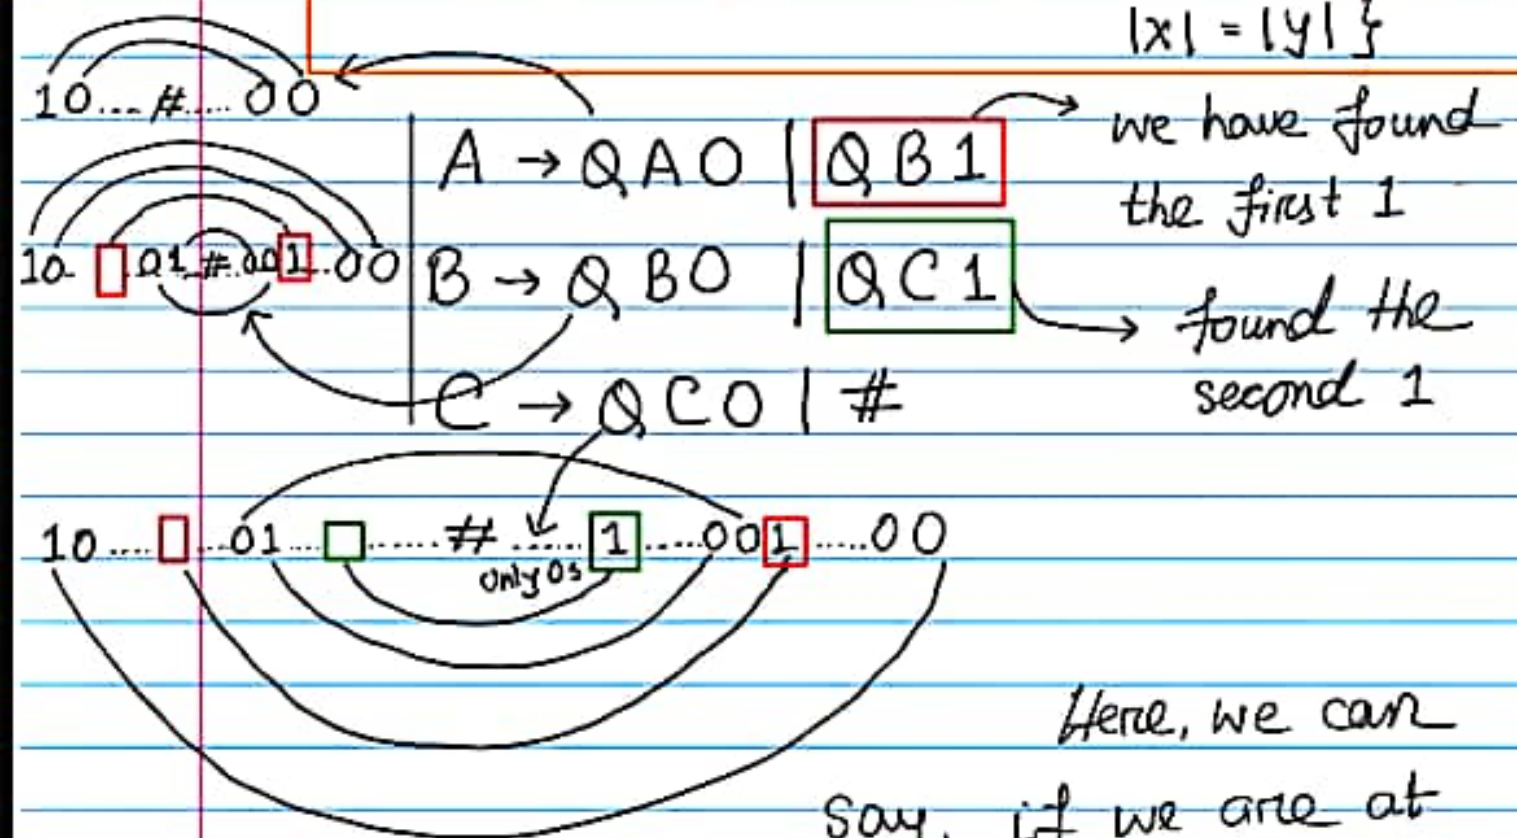 |x| = |y| }
10....#.....00
A → QA0 | QB1
we have found
the first 1
10 .01.#.001..00
B → QB0 | QC1
found the
second 1
C → QC0 | #
10.... ...01... ......#......1.....001.....00
only 0s
Here, we can
say, if we are at